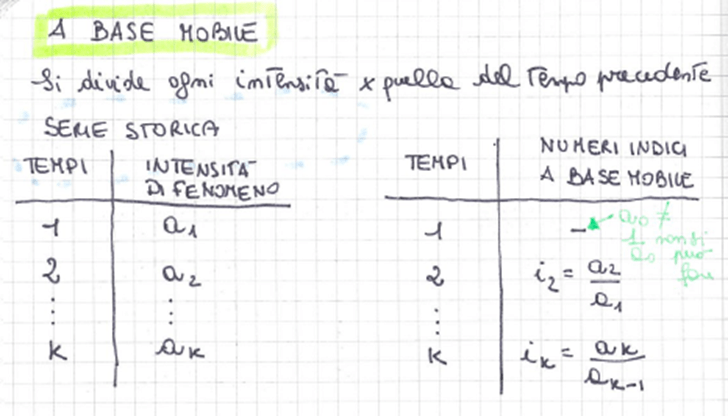 A BASE MOBILE
Si divide ogni intensità x quella del tempo precedente
SERIE STORICA
TEMPI | INTENSITÀ DI FENOMENO
1 | a₁
2 | a₂
⋮ | ⋮
k | aₖ
TEMPI | NUMERI INDICI A BASE MOBILE
1 | –
a₀ ≠
non si
può
fare
2 | i₂ = a₂/a₁
⋮
k | iₖ = aₖ/aₖ₋₁